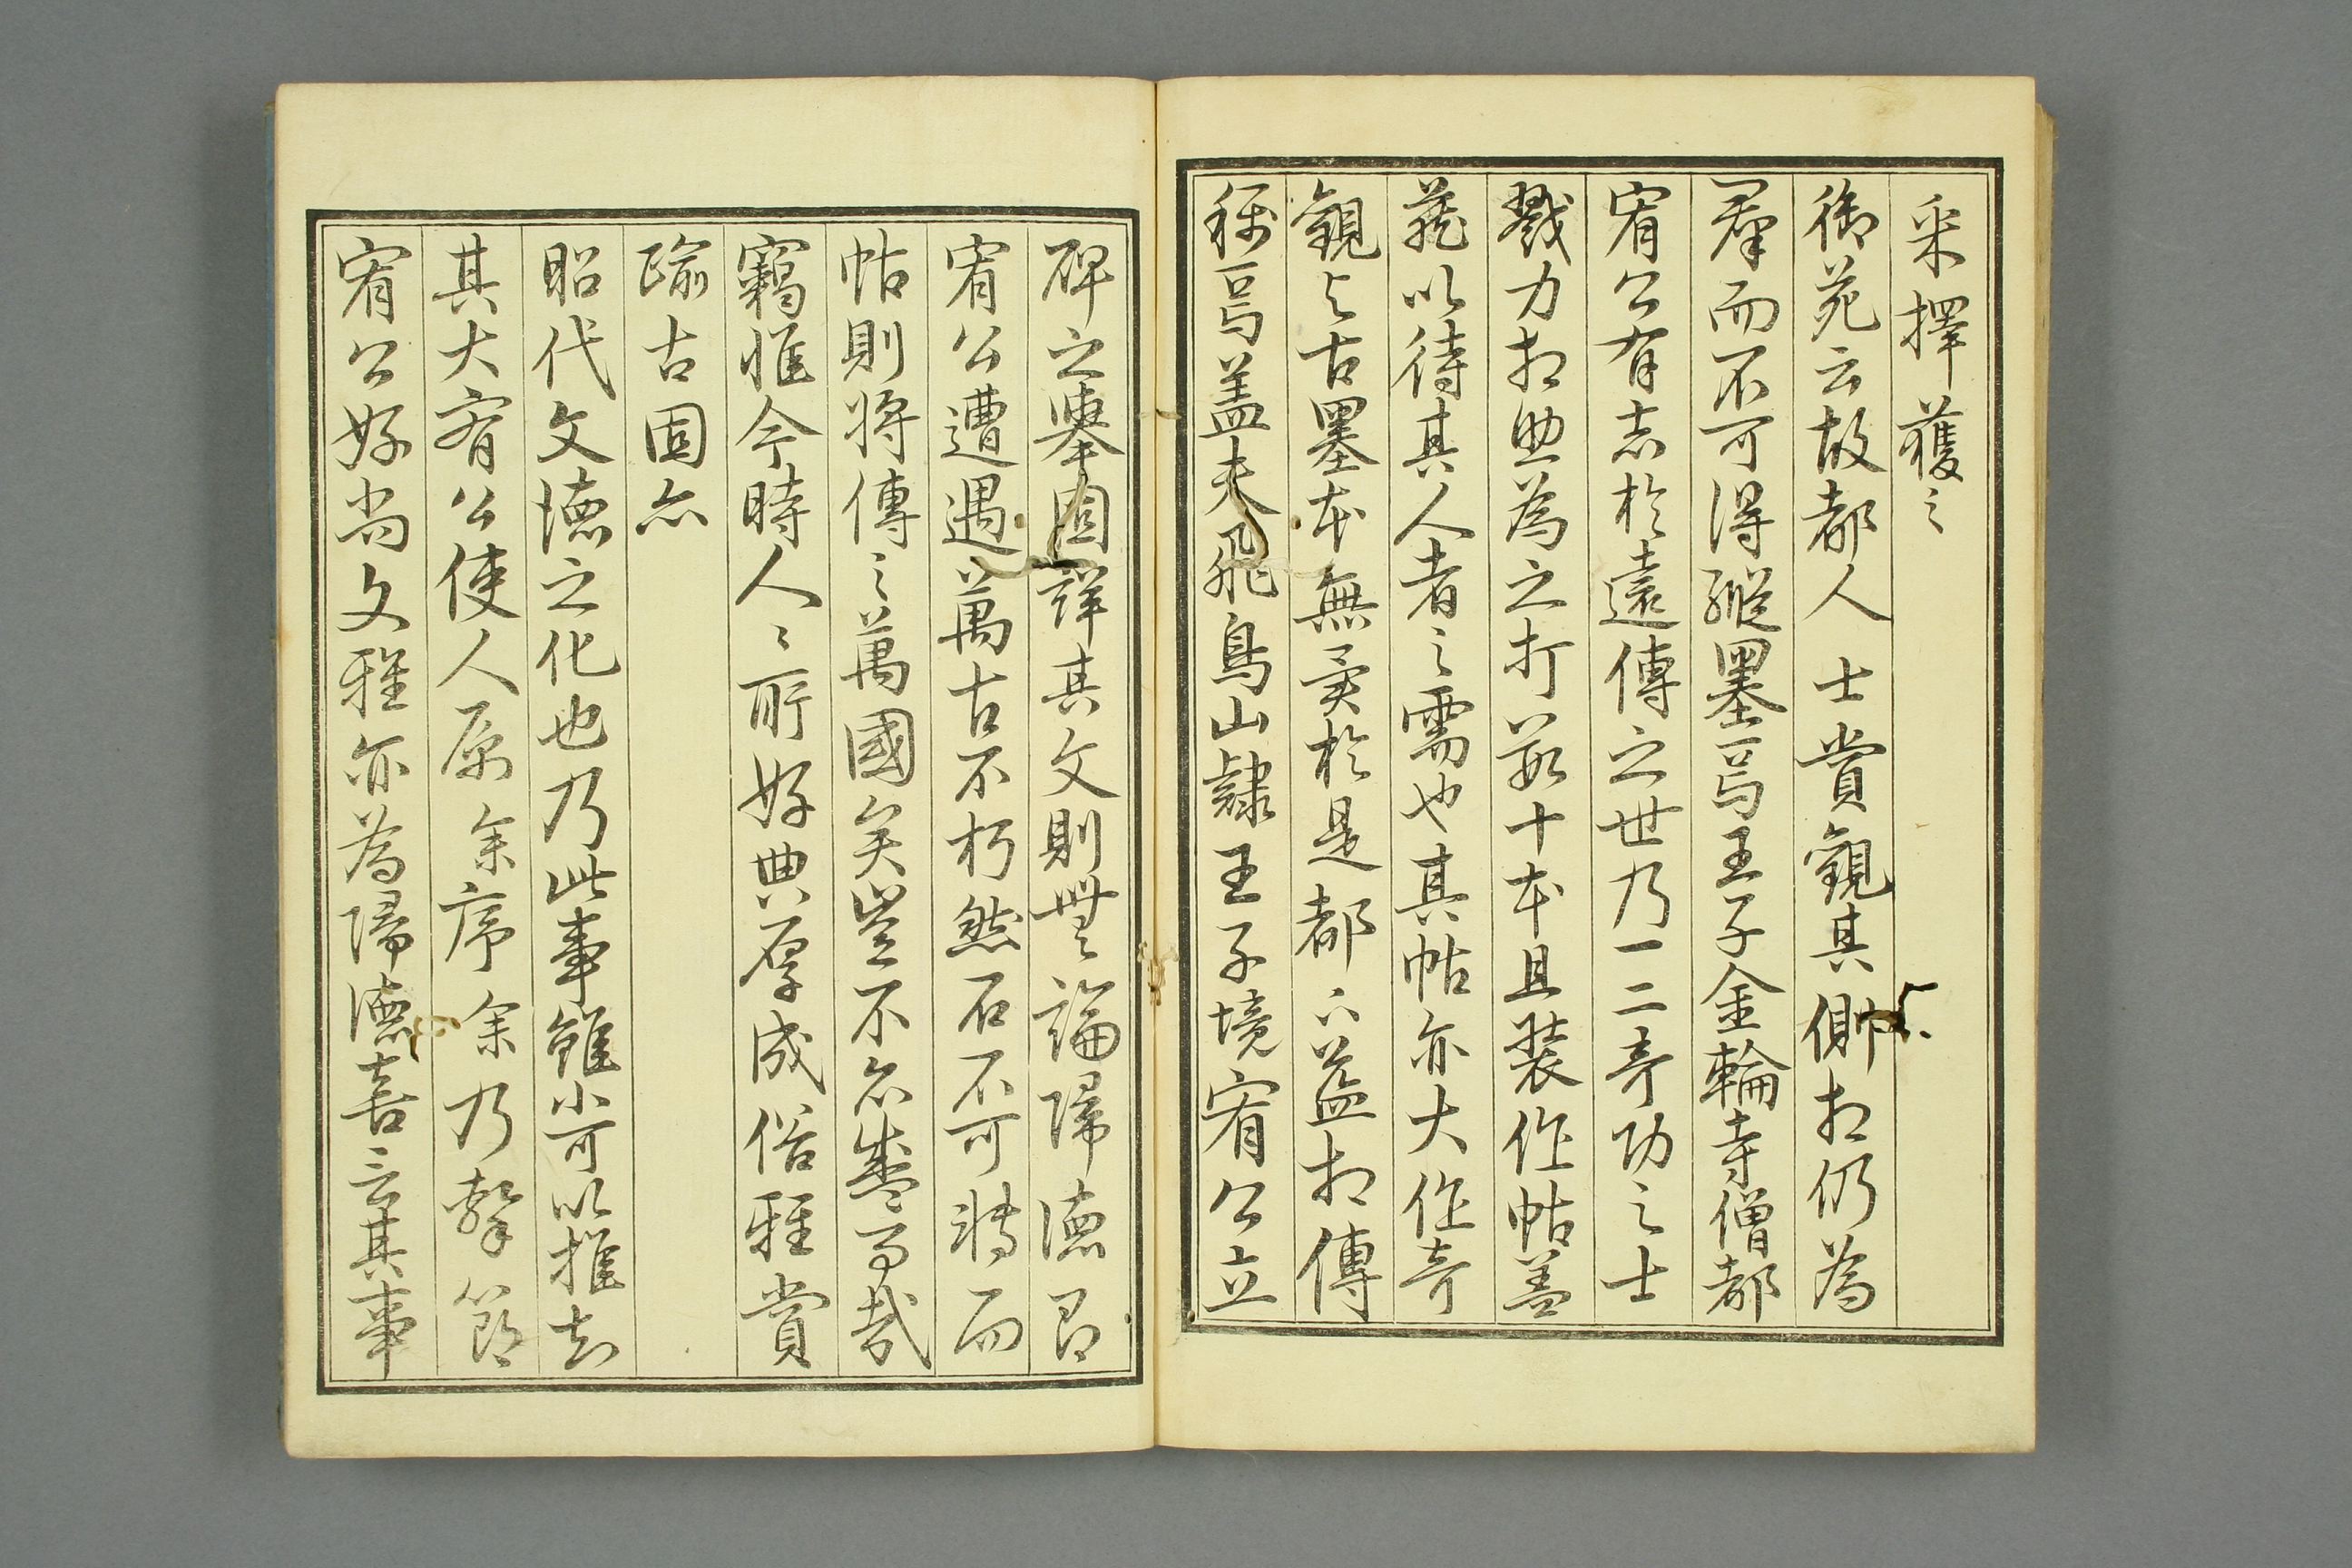 采擇獲之
御苑云故都人士賞觀其側拓仍為
羣而不可得縱墨焉王子金輪寺僧都
宥公有志於遠傳之世乃一二奇功之士
戮力相助為之打數十本且裝作帖盖
藏以待其人者之需也其帖亦大作奇
觀與古墨本無異於是都下益相傳
稱焉盖夫飛鳥山隸王子境宥公立
碑之舉固詳其文則無論歸德即
宥公遭遇萬古不朽然石不可轉而
帖則將傳之萬國矣豈不亦盛事哉
竊惟今時人々所好典厚成俗雅賞
踰古固亦
昭代文德之化也乃此事雖小可以推知
其大宥公使人屬余序余乃擊節
宥公好尚文雅亦為歸德喜云其事